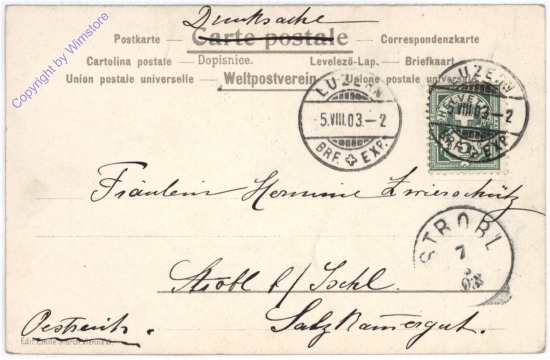 Drucksache
Carte postale
Postkarte — Correspondenzkarte
Cartolina postale — Dopisnice. — Levelező-Lap. — Briefkaart
Union postale universelle — Weltpostverein — Unione postale universale
LUZERN
5.VIII.03.–2
BRF. EXP.
LUZERN
5.VIII.03.–2
BRF. EXP.
HELVETIA
5
Fräulein Hermine Zwierschütz
STROBL
7
8
03
Strobl b/ Ischl.
Oestreich. Salzkamergut.
Copyright by Wimstore